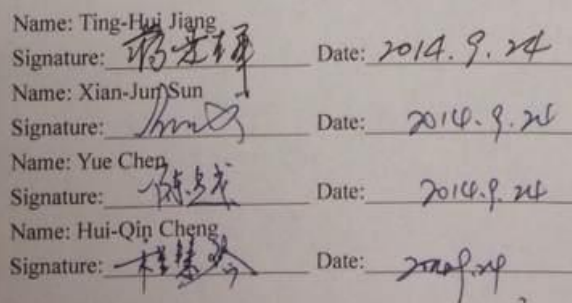 Name: Ting-Hui Jiang
Signature: Date: 2014.9.24
Name: Xian-Jun Sun
Signature: Date: 2014.9.24
Name: Yue Chen
Signature: Date: 2014.9.24
Name: Hui-Qin Cheng
Signature: Date: